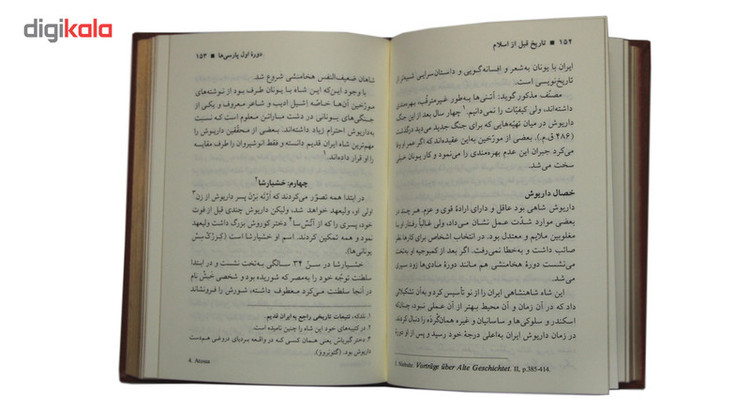 digikala
۱۵۲ ■ تاریخ قبل از اسلام
ایران با یونان به‌شعر و افسانه‌گویی و داستان‌سرایی شبیه‌تر از
تاریخ‌نویسی است.
مصنّف مذکور گوید: آتنی‌ها به‌طور غیرمترقّب، بهره‌مندی
داشته‌اند، ولی کیفیّات را نمی‌دانیم.۱ چهار سال بعد از این جنگ
داریوش در میان تهیّه‌هایی که برای جنگ جدید می‌دید درگذشت
(۴۸۶ ق.م). بعضی از مورّخین به‌این عقیده‌اند که اگر عمر او وفا
می‌کرد جبران این عدم بهره‌مندی را می‌نمود و کار یونان خیلی
سخت می‌شد.
خصال داریوش
داریوش شاهی بود عاقل و دارای ارادهٔ قوی و عزم. هرچند در
بعضی موارد شدّت عمل نشان می‌داد، ولی غالباً رفتار او با
مغلوبین ملایم و معتدل بود. در انتخاب اشخاص برای کارها نظر
صائب داشت و به‌خطا نمی‌رفت. اگر بعد از کمبوجیه او به‌تخت
نمی‌نشست دورهٔ هخامنشی هم مانند دورهٔ مادی‌ها زود سپری
می‌شد.
این شاه شاهنشاهی ایران را از نو تأسیس کرد و به‌آن تشکیلاتی
داد که در آن زمان و آن محیط بهتر از آن عملی نبود، چنان‌که
اسکندر و سلوکی‌ها و ساسانیان و غیره همان‌گُرده را دنبال کردند
در زمان داریوش ایران به‌اعلی درجهٔ خود رسید و پس از او
1. Niebuhr. Vorträge über Alte Geschichtet. II, p.385-414.
دورهٔ اول پارسی‌ها ■ ۱۵۳
شاهان ضعیف‌النفس هخامنشی شروع شد.
با وجود این‌که این شاه با یونان طرف بود از نوشته‌های
مورّخین آن‌ها خاصّه اِشیل ادیب و شاعر معروف و یکی از
جنگی‌های یونانی در دشت ماراتن معلوم است که نسبت
به‌داریوش احترام زیاد داشته‌اند. بعضی از محقّقین داریوش را
مهم‌ترین شاه ایران قدیم دانسته و فقط انوشیروان را طرف مقایسه
با او قرار داده‌اند.۱
چهارم: خشیارشا۲
در ابتدا همه تصوّر می‌کردند که اَرْتُبه بَرْن پسر داریوش از زن۳
اولی او، ولیعهد خواهد شد، ولیکن داریوش چندی قبل از فوت
خود، پسری را که از آتُسّا۴ دختر کوروش بزرگ داشت ولیعهد
نمود و همه تمکین کردند. اسم او خشیارشا بود
خشیارشا در سنّ ۳۴ سالگی به‌تخت نشست و در ابتدا
سلطنت توجّه خود را به‌مصر که شوریده بود و شخصی خَبَش نام
در آنجا سلطنت می‌کرد معطوف داشته، شورش را فرونشاند
۱. نلدکه، تتبعات تاریخی راجع به ایران قدیم.
۲. در کتیبه‌های خود این شاه را چنین نامیده است.
۳. دختر گبریاس یعنی همان کسی که در واقعه بردیای دروغی هم‌دست
داریوش بود. (گئوبروو)
4. Atossa